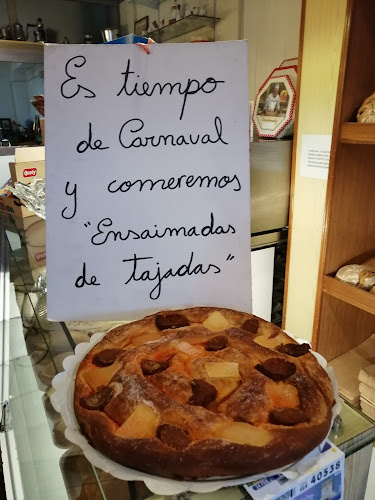 Es tiempo
de Carnaval
y comeremos
"Ensaimadas
de tajadas"
40538